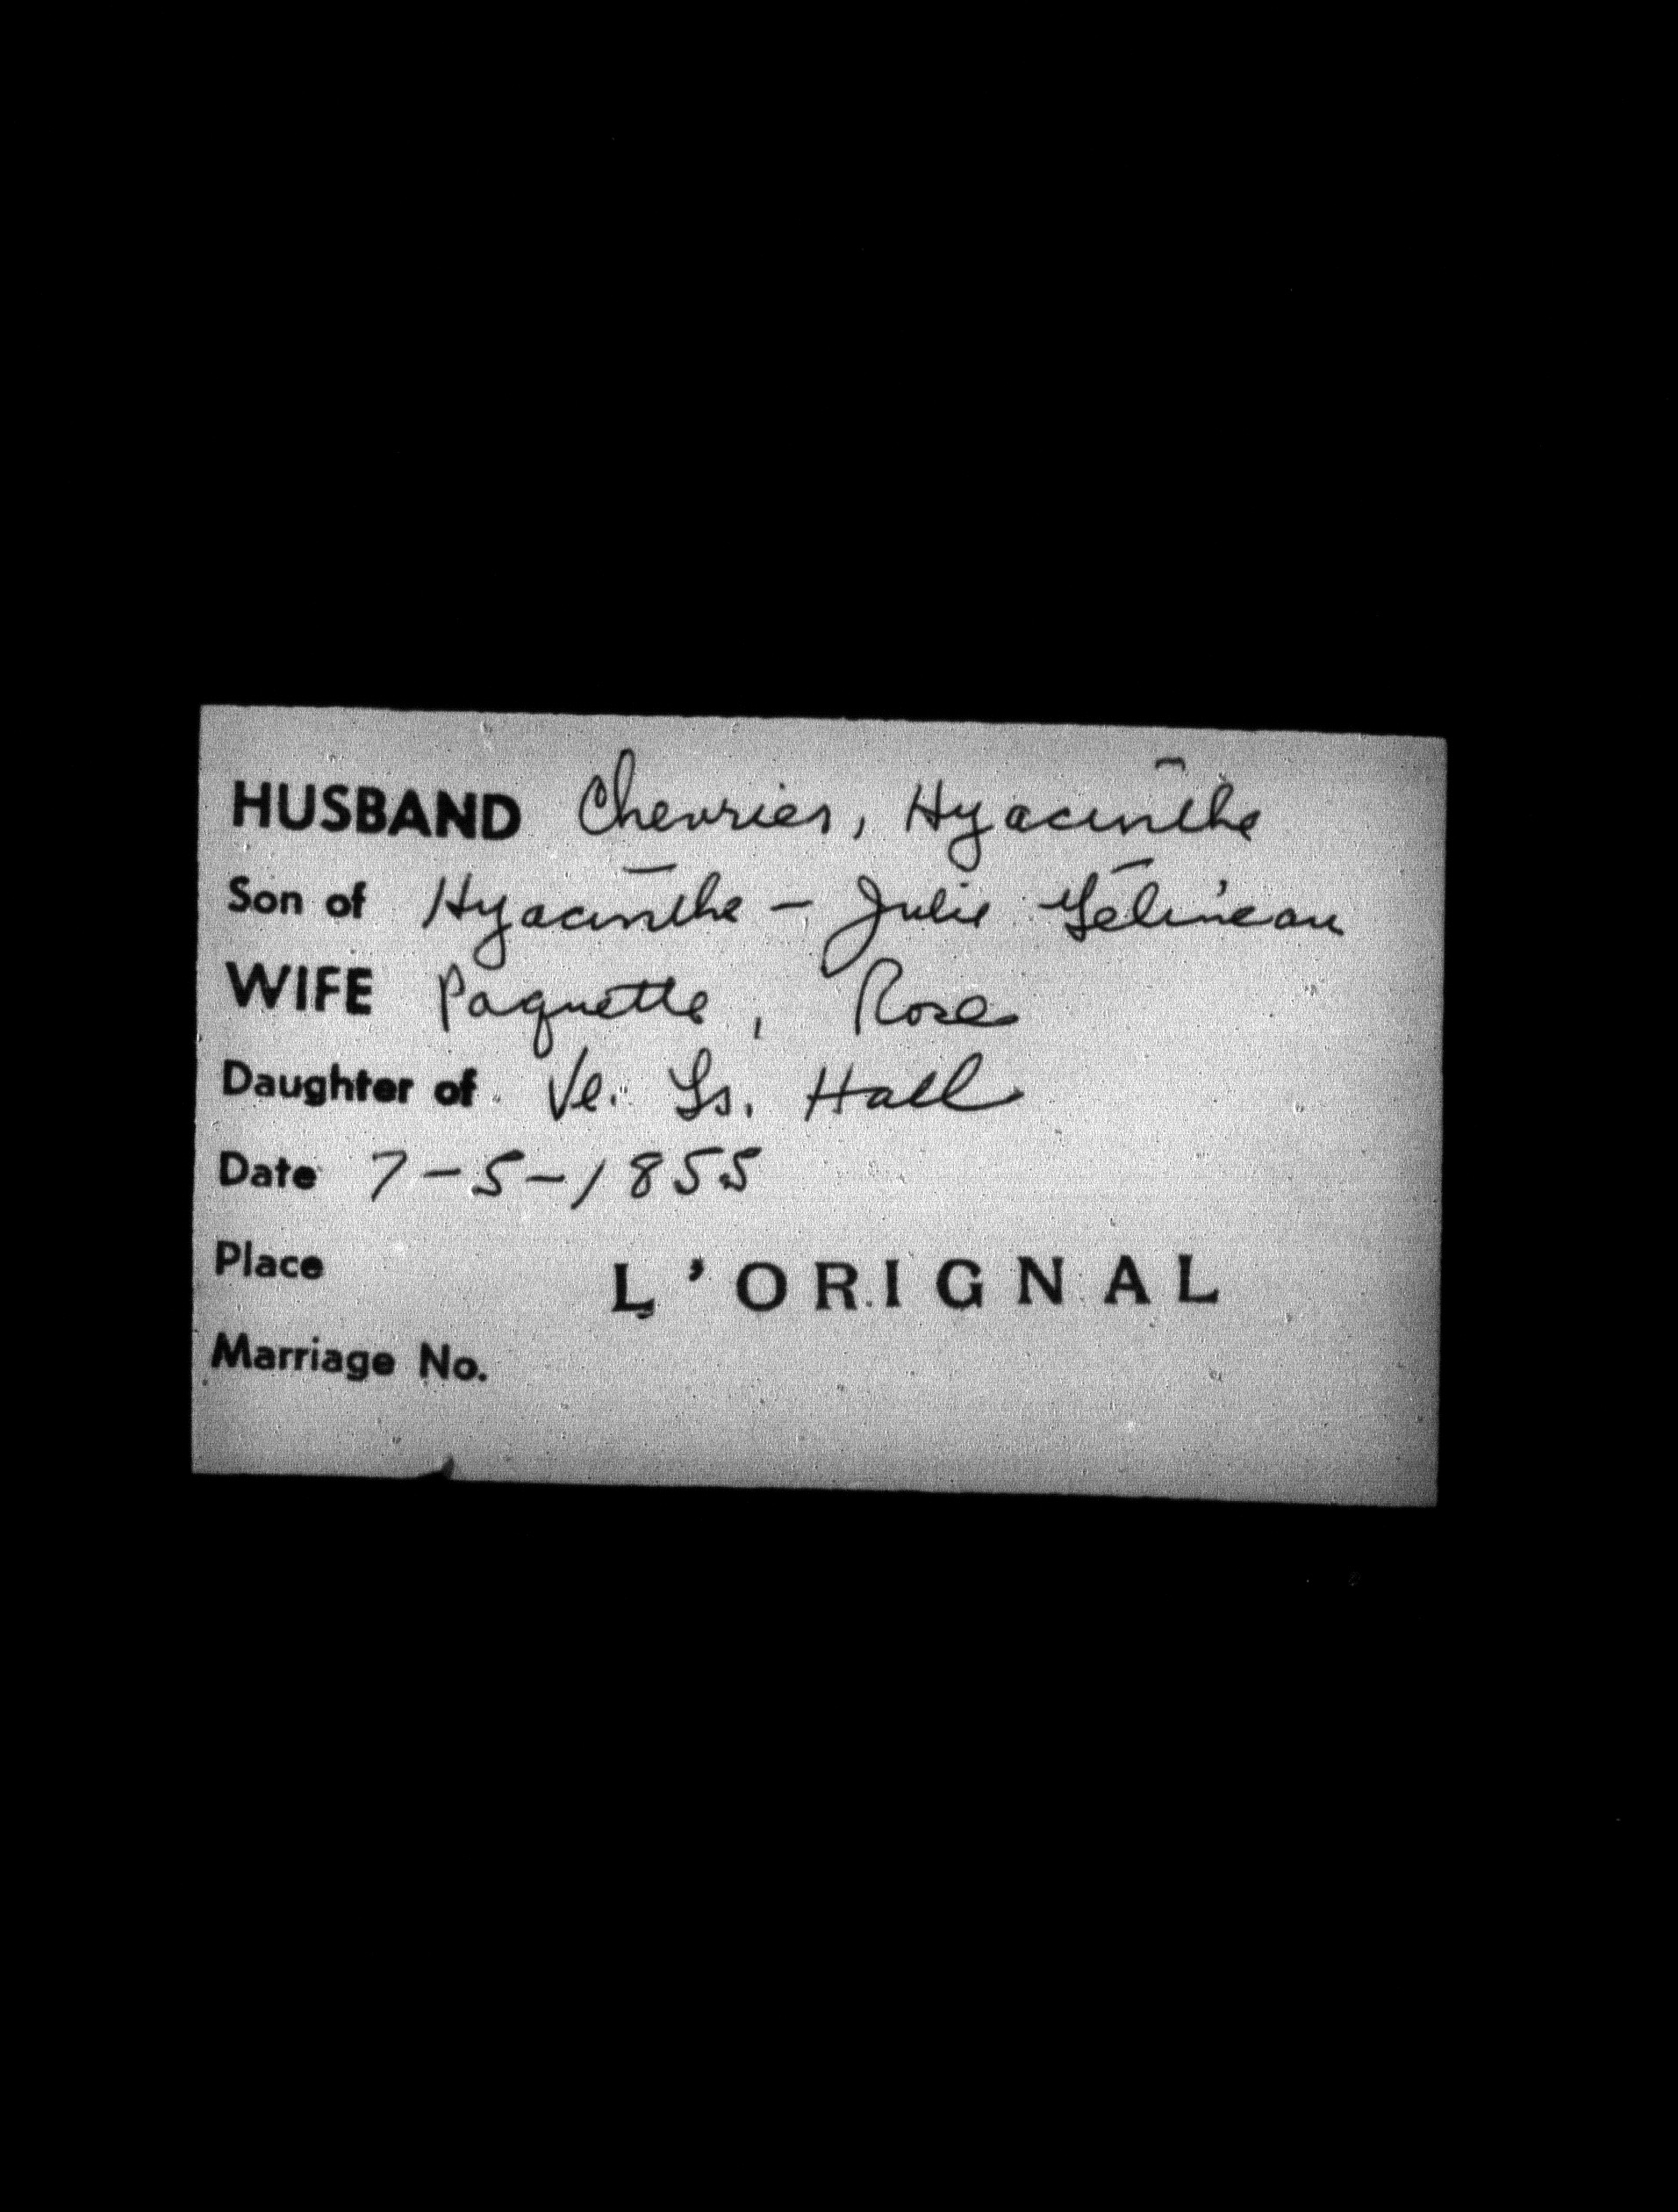 HUSBAND Chevrier, Hyacinthe
Son of Hyacinthe - Julie Gélineau
WIFE Paquette, Rose
Daughter of Ve. Ls. Hall
Date 7-5-1855
Place L'ORIGNAL
Marriage No.